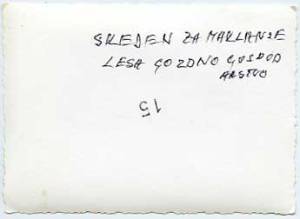 SKEDEN ZA MAKLANJE
LESA GOZDNO GOSPOD
ARSTVO
15